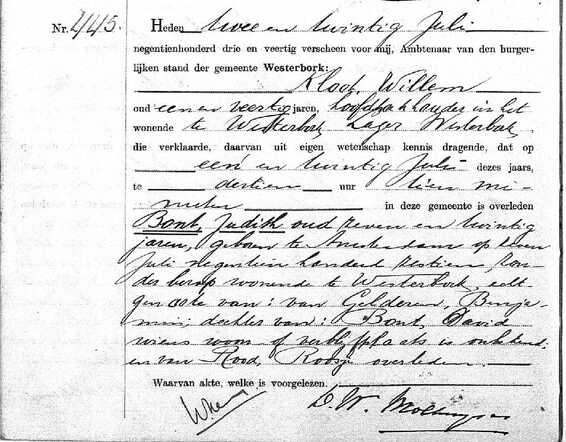 Nr. 445. Heden twee en twintig Juli
negentienhonderd drie en veertig verscheen voor mij, Ambtenaar van den burger-
lijken stand der gemeente Westerbork:
Willem
oud een en veertig jaren, in het
wonende te Westerbork Lager Westerbork,
die verklaarde, daarvan uit eigen wetenschap kennis dragende, dat op
een en twintig Juli dezes jaars,
te dertien uur tien mi-
nuten in deze gemeente is overleden
Bont, Judith oud zeven en twintig
jaren, geboren te Amsterdam op zeven
Juli negentien honderd zestien, zon-
der beroep wonende te Westerbork, echt-
genoote van: van Gelderen, Benja-
min; dochter van: Bont, David
wiens woon of verblijfplaats is onbekend,
en van Rood, Roosje overleden.
Waarvan akte, welke is voorgelezen.